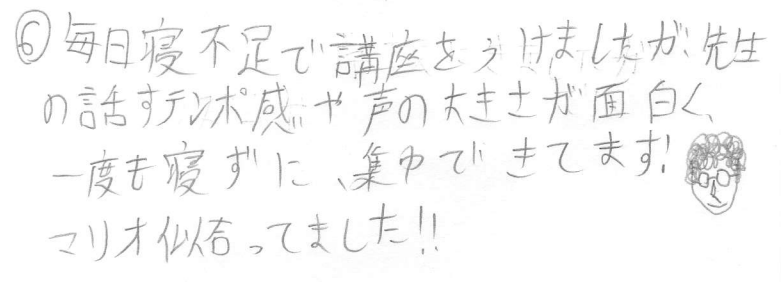 ⑥毎日寝不足で講座をうけましたが、先生
の話すテンポ感や声の大きさが面白く、
一度も寝ずに、集中できてます!
マリオ似合ってました!!